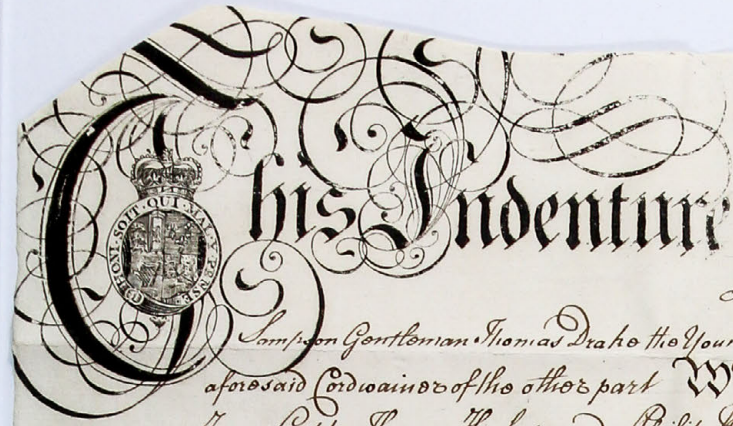 This Indenture
HONI·SOIT·QUI·MAL·Y·PENSE
Sampson Gentleman Thomas Drake the You
aforesaid Cordwainer of the other part W